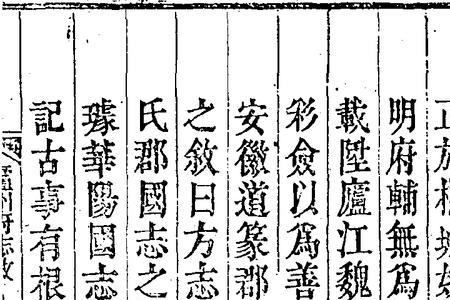 明府輔無爲
載陞廬江魏
彩僉以爲善
安徽道篆郡
之敘曰方志
氏郡國志之
璩華陽國志
記古事有根